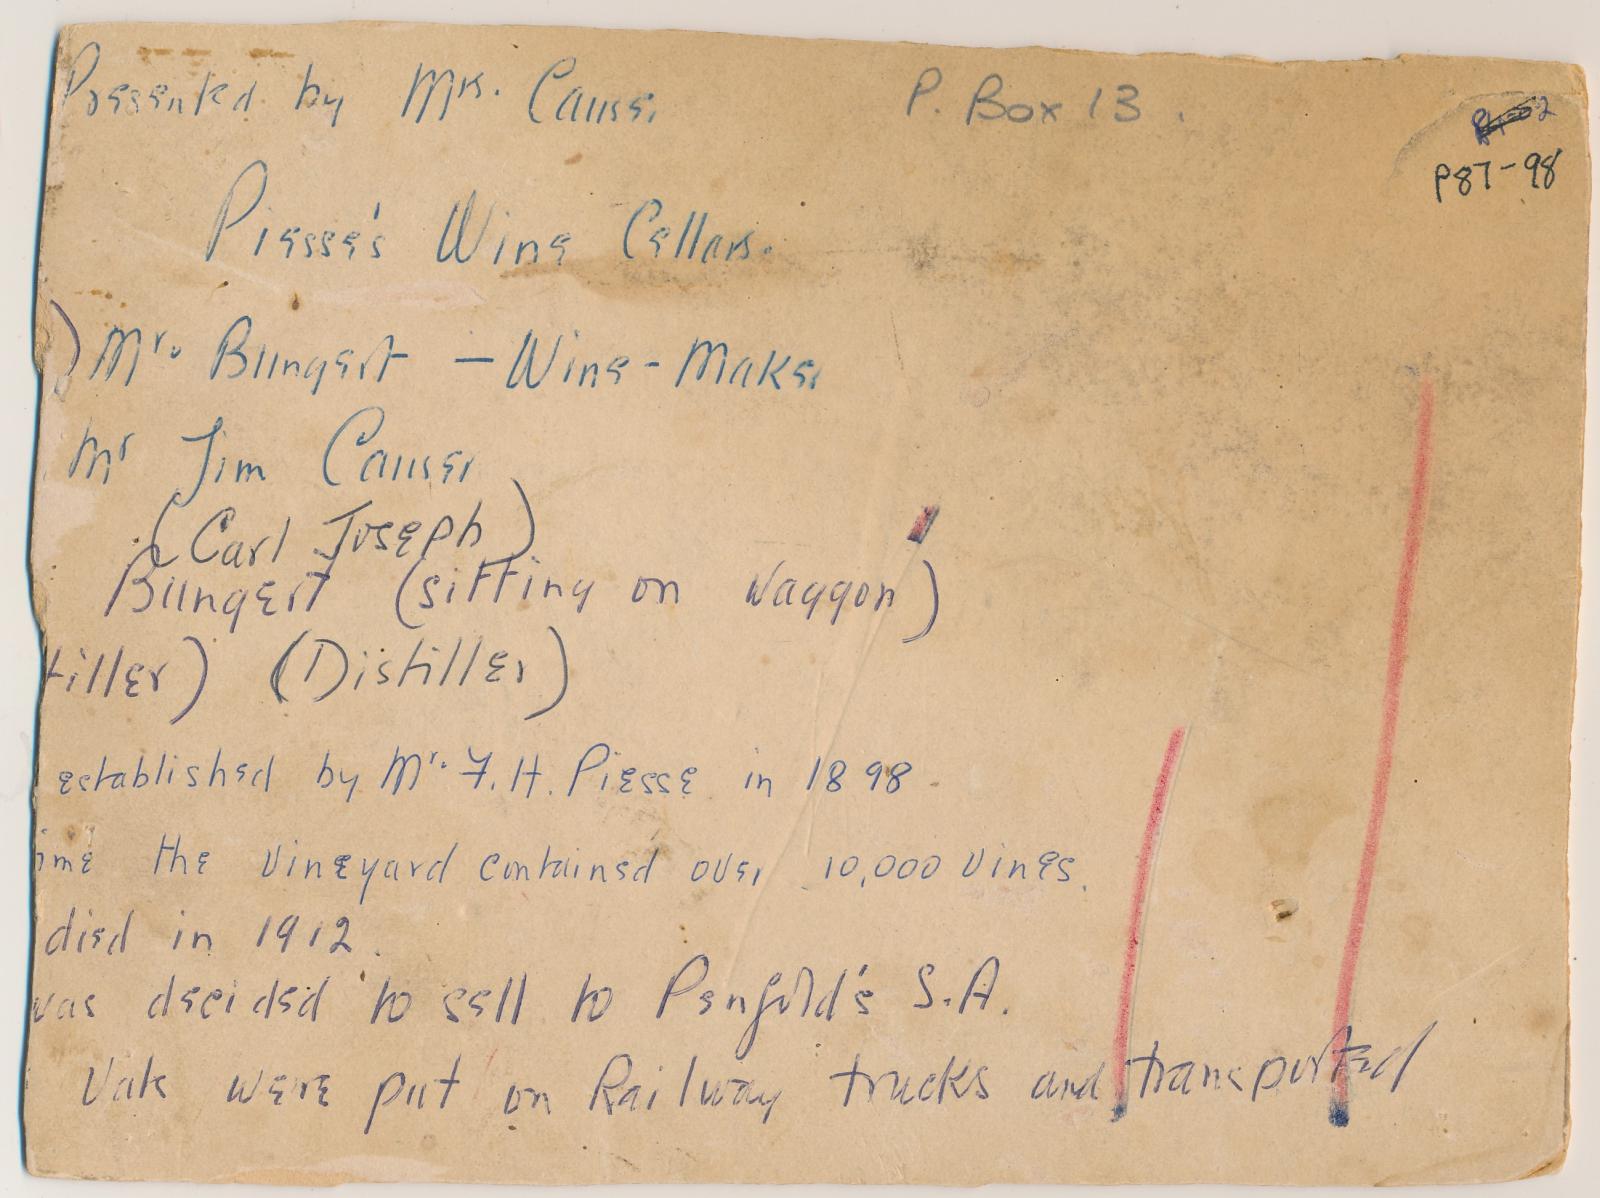 Presented by Mrs. Causer P. Box 13.
P87-98
Piesse's Wine Cellars.
) Mr. Bungert — Wine-Maker
Mr Jim Causer
(Carl Joseph)
Bungert (sitting on waggon)
tiller) (Distiller)
established by Mr. F. H. Piesse in 1898
ime the vineyard contained over 10,000 vines.
died in 1912.
was decided to sell to Penfold's S.A.
Vats were put on Railway trucks and transported